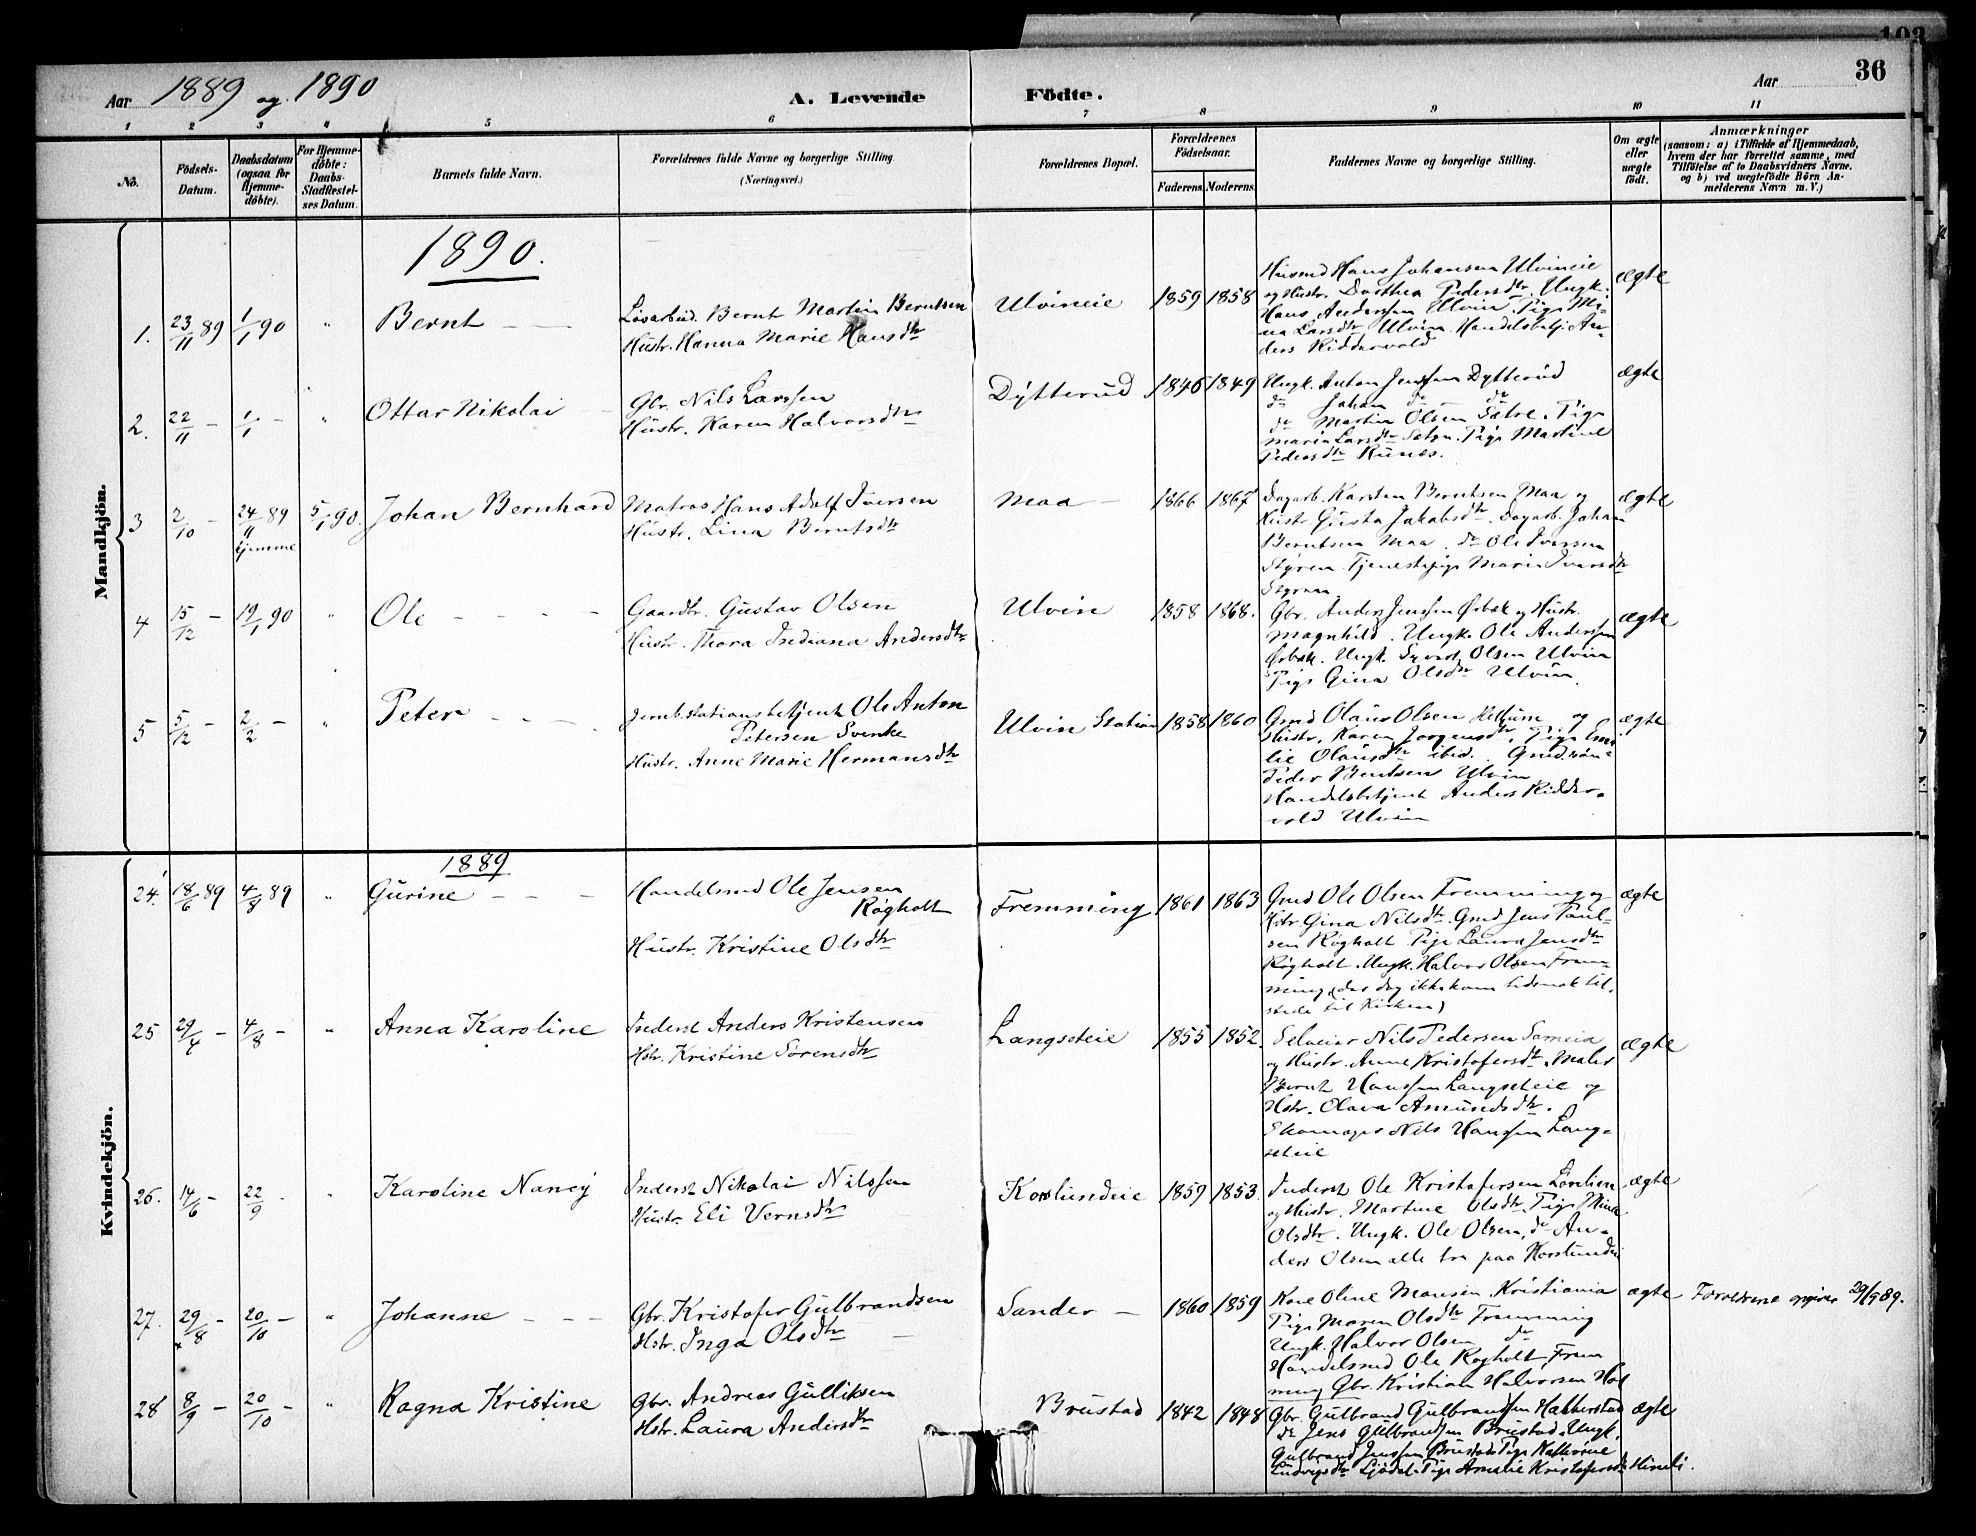 103
36
Aar 1889 og 1890
A. Levende Födte.
Aar
1 2 3 4 5 6 7 8 9 10 11
No.
Födsels-
Datum.
Daabsdatum
(ogsaa for
Hjemme-
döbte).
For Hjemme-
döbte:
Daabs-
Stadfæstel-
ses Datum.
Barnets fulde Navn.
Forældrenes fulde Navne og borgerlige Stilling
(Næringsvei.)
Forældrenes Bopæl.
Forældrenes
Födselsaar.
Faderens. Moderens.
Faddernes Navne og borgerlige Stilling.
Om ægte
eller
uægte
födt.
Anmærkninger
(saasom: a) i Tilfælde af Hjemmedaab,
hvem der har forrettet samme, med
Tilföielse af to Daabsvidners Navne,
og b) ved uægtefödte Börn An-
melderens Navn m. V.)
Mandkjön.
1890.
1. 23/11 89 1/1 90 " Bernt
Løsarbeid. Bernt Martin Berntsen
Hustr. Hanna Marie Hansdtr
Ulvineie 1859 1858
Husmd Hans Johansen Ulvineie
og Hustr. Dorthea Pedersdtr. Ungk.
Hans Andersen Ulvin. Pige Mi-
na Larsdtr Ulvin. Handelsbetj. An-
ders Riddervold
ægte
2. 22/11 - 1/1 - " Ottar Nikolai
Gbr. Nils Larssen
Hustr. Karen Halvorsdtr
Dytterud 1846 1849
Ungk. Anton Jenssen Dytterud
do Johan do do
do Martin Olsen Sætre. Pige
Maria Larsdtr Sætre. Pige Martine
Pedersdtr Runes.
ægte
3 2/10 - 24/11 89 hjemme 5/1 90. Johan Bernhard
Matros Hans Adolf Iversen
Hustr. Lina Berntsdtr
Maa 1866 1867
Dagarb. Karsten Berntsen Maa og
Hustr Gusta Jakobsdtr. Dagarb. Johan
Berntsen Maa. do Ole Iversen
Styren. Tjenestepige Marie Iversdtr
ægte
4 15/12 - 19/1 90 " Ole
Gaardbr. Gustav Olsen
Hustr. Thora Indiana Andersdtr
Ulvin 1858 1868.
Gbr. Anders Jenssen Ørbæk og Hustr.
Magnhild. Ungk. Ole Anderssen
Ørbæk. Ungk. Olsen Ulvin
Pige Gina Olsdtr Ulvin.
ægte
5 5/12 - 2/2 - " Peter
Jernb.stationsbetjent Ole Anton
Petersen Svenke
Hustr. Anne Marie Hermansdtr
Ulvin Station 1858 1860
Gmd Olaus Olsen og
Hustr. Karen Jørgensdtr. Pige Emi-
lie Olausdtr ibid. Gmdssøn
Peder Berntsen Ulvin
Handelsbetjent Anders Ridder-
vold Ulvin
ægte
Kvindekjön.
1889
24. 18/6 89 4/8 89 " Gurine
Handelsmd Ole Jensen
Røgholt
Hustr. Kristine Olsdtr
Fremming 1861 1863
Gmd Ole Olsen Fremming og
Hstr Gina Nilsdtr. Gmd Jens Paul-
sen Røgholt Pige Laura Jensdtr
Røgholt. Ungk. Halvor Olsen Frem-
ming (der dog ikke kom tidsnok til-
stede til Kirken)
ægte
25 29/4 - 4/8 - " Anna Karoline
Inderst Anders Kristensen
Hstr. Kristine Sørensdtr
Langseteie 1855 1852.
Selveier Nils Pedersen
og Hustr. Anne Kristofersdtr. Maler
Bernt Hanssen Langseteie og
Hstr. Olava Amundsdtr.
Skomager Nils Hanssen Lang-
seteie
ægte
26. 14/6 - 22/9 " Karoline Nancy
Inderst Nikolai Nilssen
Hustr. Eli Vernsdtr
Korslundeie 1859 1853
Inderst Ole Kristofersen
og Hustr. Martine Olsdtr. Pige Mina
Olsdtr. Ungk. Ole Olsen, do An-
ders Olsen alle tre paa Korslundeie
ægte
27. 29/8 - 20/10 - " Johanne
Gbr. Kristofer Gulbrandsen
Hstr. Inga Olsdtr
Sander 1860 1859
Kone Oline Monsen. Kristiania
Pige Maren Olsdtr Fremming
Ungk. Halvor Olsen do
Handelsmd Ole Rogholt Frem
ming Gbr. Kristian Halvorsen Hol
ægte
Forældrene opgiver 29/7 89.
28 8/9 - 20/10 - " Ragna Kristine
Gbr. Andreas Gulliksen
Hstr. Laura Andersdtr
Brustad 1842 1848
Gbr. Gulbrand Gulbrandsen Habberstad
do Jens Gulbrandsen Brustad. Ungk.
Gulbrand Jenssen Brustad. Pige Kathrine
Ludvigsdtr Pige Amalie Kristofersdtr
ægte